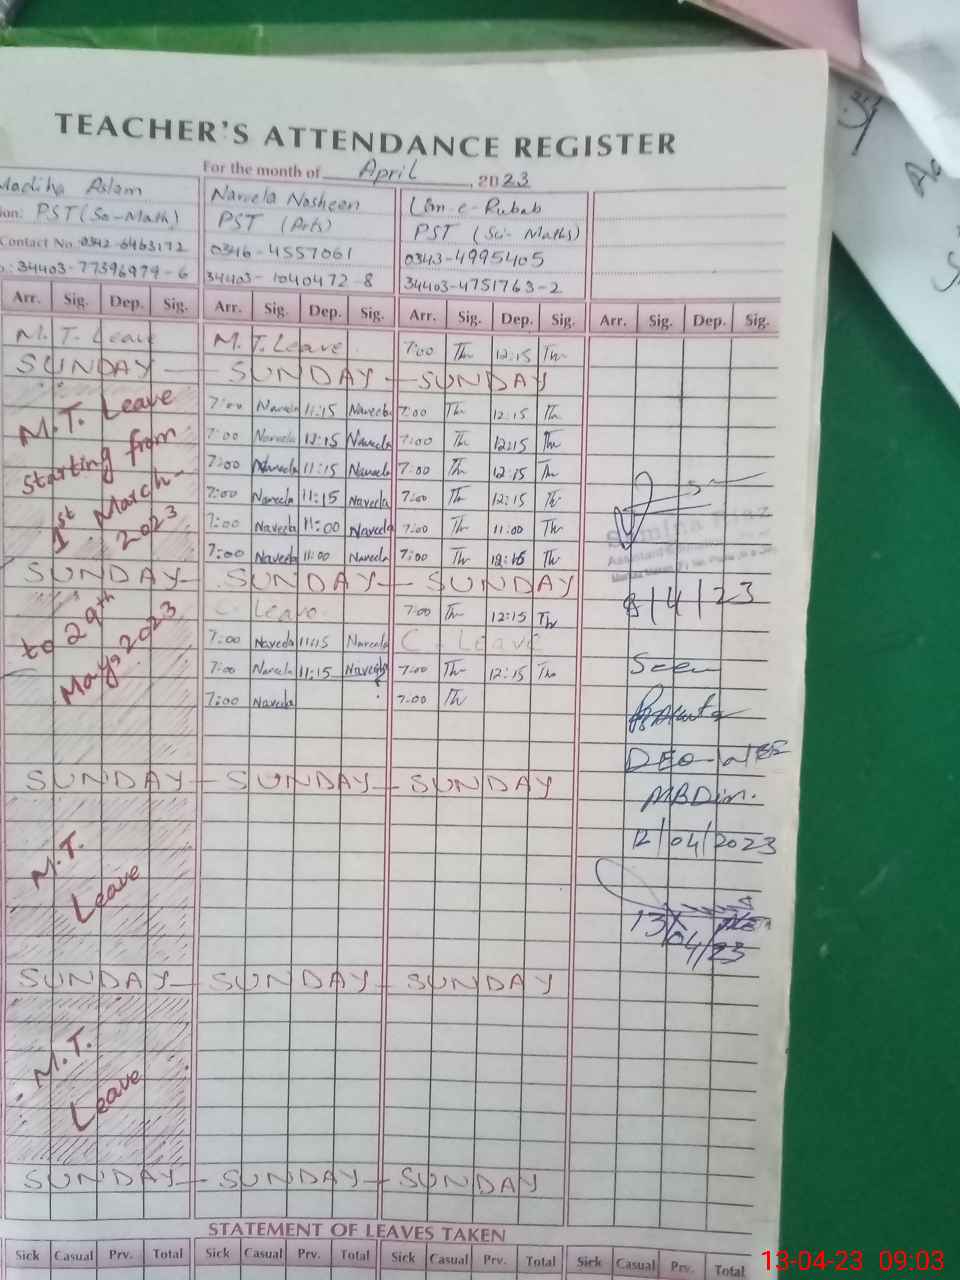 TEACHER'S ATTENDANCE REGISTER
For the month of April, 2023
Madiha Aslam
Naveela Nosheen
PST (Sc-Math)
PST (Arts)
PST (Sci- Maths)
Contact No 0342-6463172
0346-4557061
0343-4995405
34403-77396979-6
34403-1040472-8
34403-4751763-2
Arr. Sig. Dep. Sig. Arr. Sig. Dep. Sig. Arr. Sig. Dep. Sig. Arr. Sig. Dep. Sig.
M.T. Leave M.T. Leave 7:00 12:15
SUNDAY SUNDAY SUNDAY
M.T. Leave
starting from
1st March-
2023
7:00 Naveela 11:15 Naveela 7:00 12:15
7:00 Naveela 12:15 Naveela 7:00 12:15
7:00 Naveela 11:15 Naveela 7:00 12:15
7:00 Naveela 11:15 Naveela 7:00 12:15
7:00 Naveela 11:00 Naveela 7:00 11:00
7:00 Naveela 11:00 Naveela 7:00 12:15
SUNDAY SUNDAY SUNDAY
8/4/23
to 29th
May, 2023
C. Leave 7:00 12:15
7:00 Naveela 11:15 Naveela C. Leave
7:00 Naveela 11:15 Naveela 7:00 12:15
7:00 Naveela 7:00
Seen
DEO
MBDin.
12/04/2023
SUNDAY SUNDAY SUNDAY
M.T.
Leave
13/04/23
SUNDAY SUNDAY SUNDAY
M.T.
Leave
SUNDAY SUNDAY SUNDAY
STATEMENT OF LEAVES TAKEN
Sick Casual Prv. Total Sick Casual Prv. Total Sick Casual Prv. Total Sick Casual Prv. Total
13-04-23 09:03